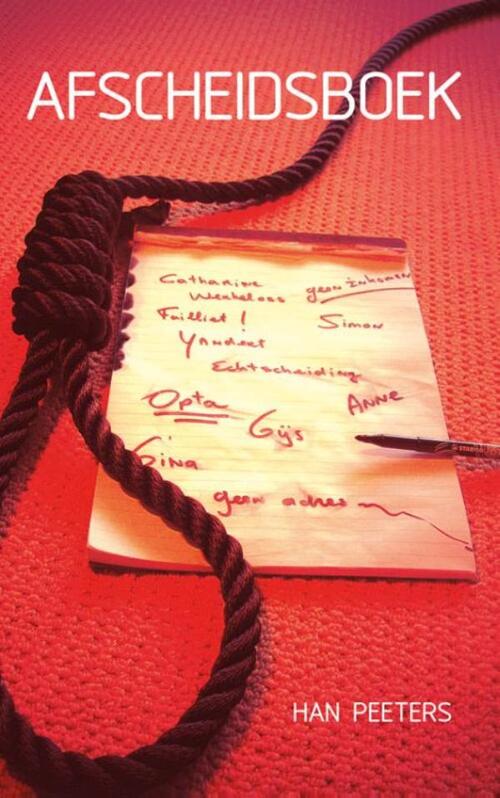 AFSCHEIDSBOEK
Catharine
Werkeloos geen inkomen
Failliet ! Simon
Yandert
Echtscheiding
Opta Gijs Anne
Gina
geen adres
HAN PEETERS